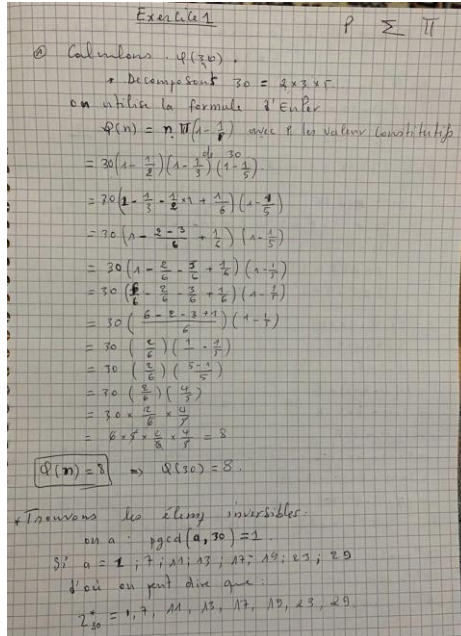 Exercice 1
P Σ Π
① Calculons φ(30).
* Decomposons 30 = 2×3×5.
on utilise la formule d'Euler
φ(n) = n Π(1-1/p) avec P les valeur constitutif
de 30
= 30(1-1/2)(1-1/3)(1-1/5)
= 30(1-1/3-1/2×1+1/6)(1-1/5)
= 30(1-2-3/6+1/6)(1-1/5)
= 30(1-2/6-3/6+1/6)(1-1/5)
= 30(6/6-2/6-3/6+1/6)(1-1/5)
= 30(6-2-3+1/6)(1-1/5)
= 30(2/6)(1/1-1/5)
= 30(2/6)(5-1/5)
= 30(2/6)(4/5)
= 30×2/6×4/5
= 6×5×2/6×4/5 = 8
φ(n)=8 => φ(30)=8.
* Trouvons les élém inversibles.
on a : pgcd(a,30)=1
Si a = 1 ; 7 ; 11 ; 13 ; 17 ; 19 ; 23 ; 29
d'où on peut dire que :
Z*30 = 1, 7, 11, 13, 17, 19, 23, 29